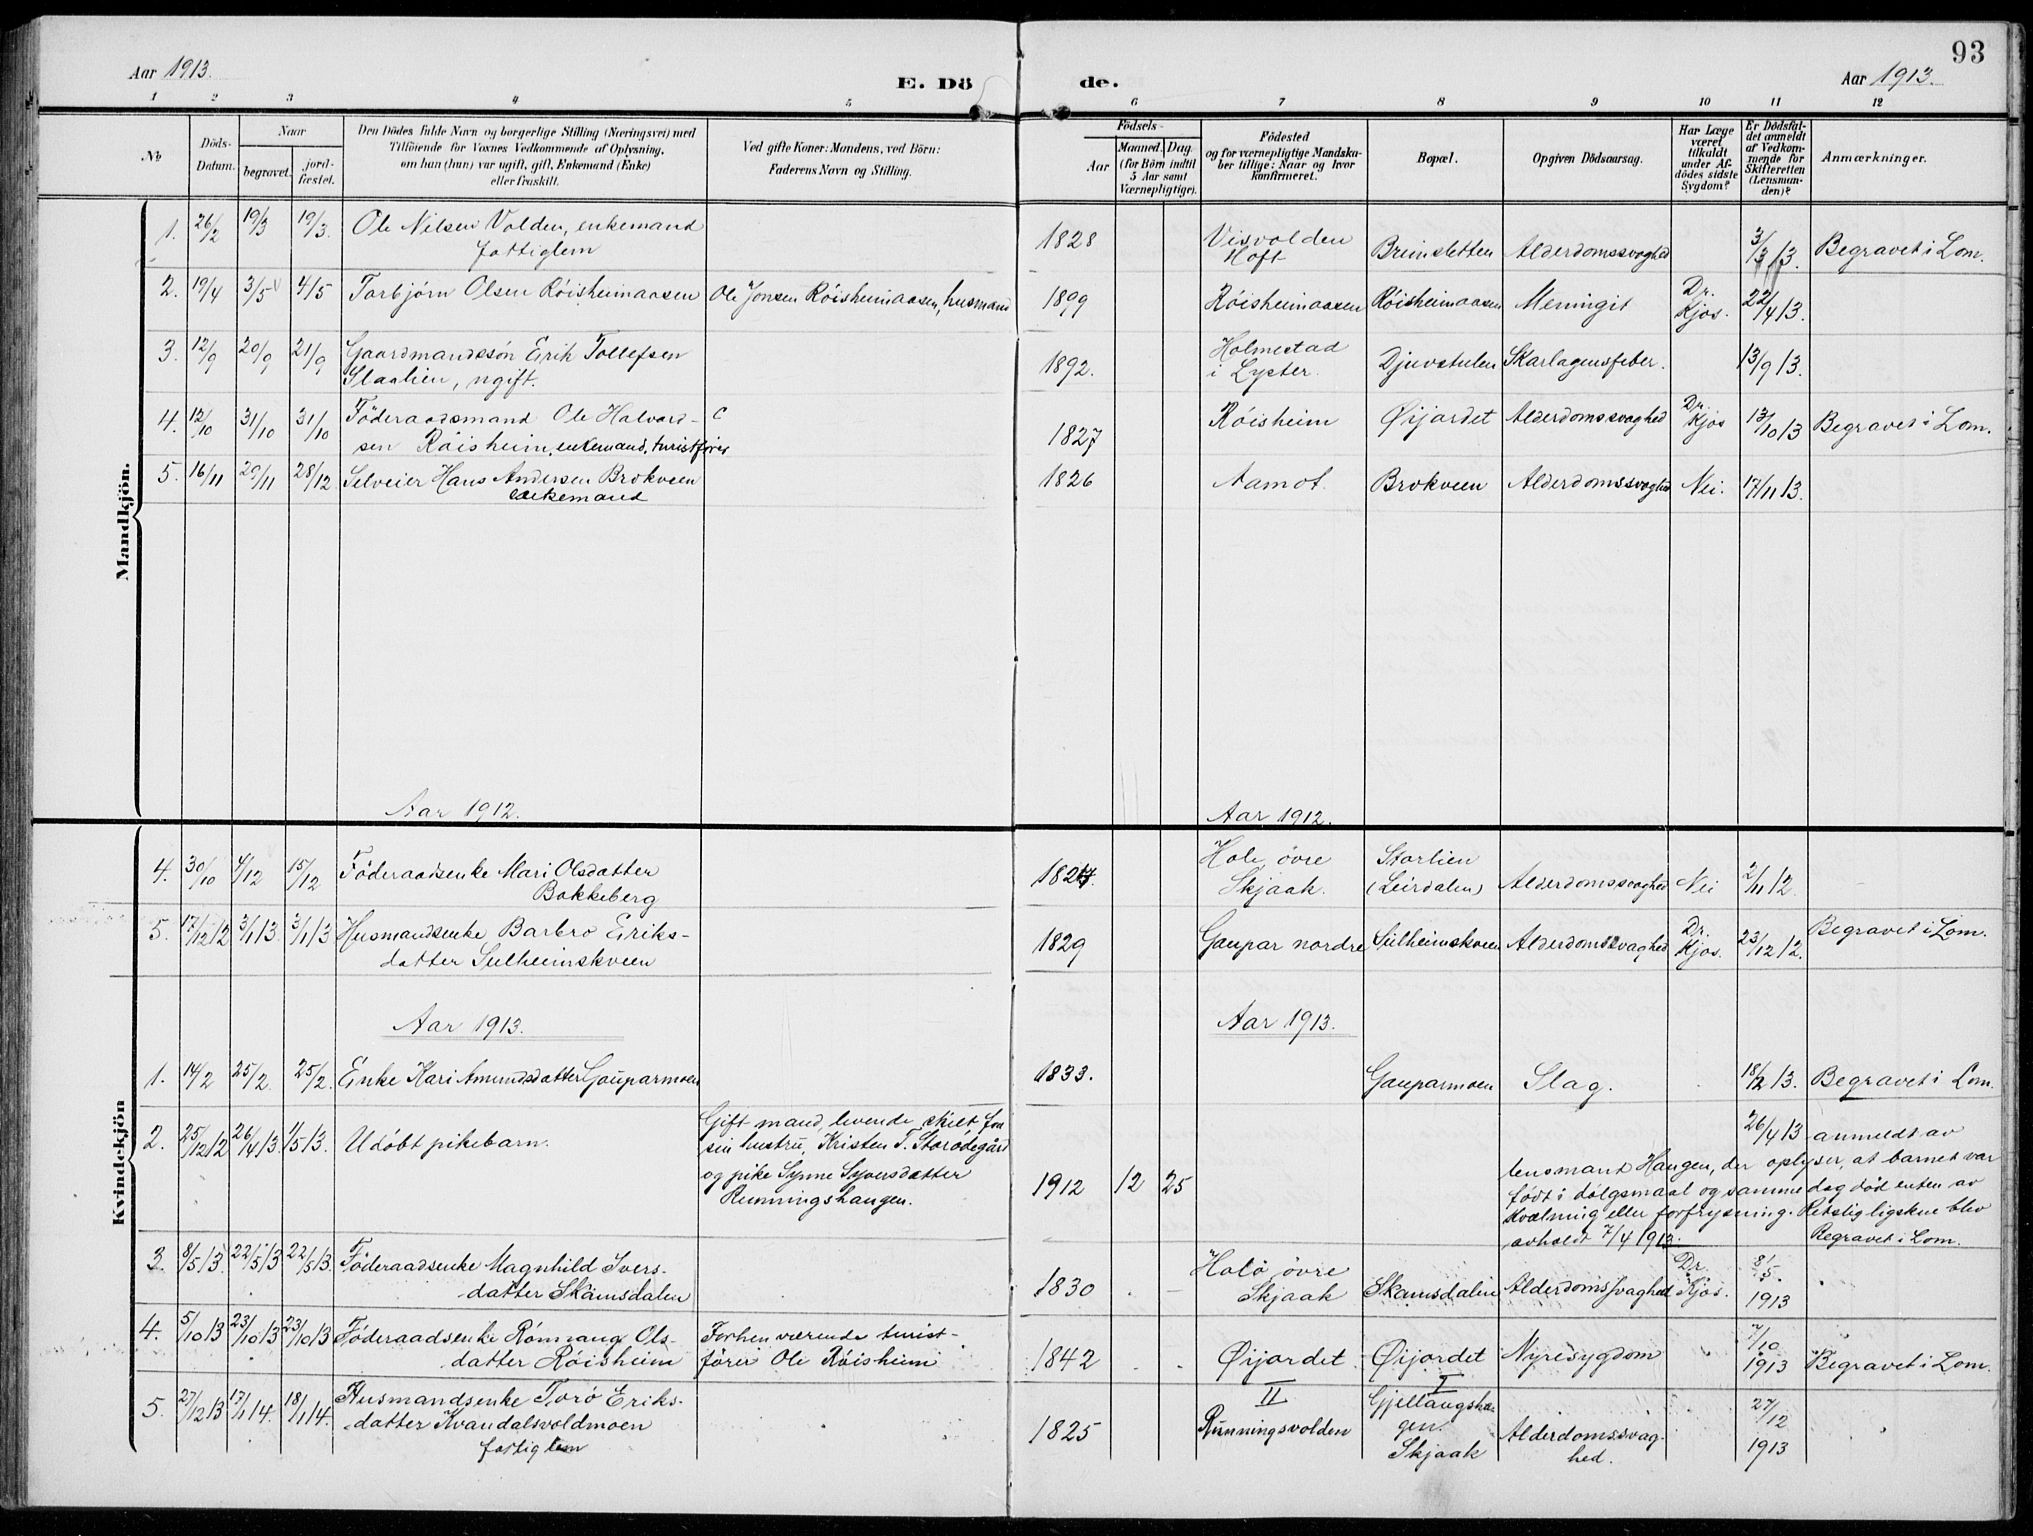 93
Aar 1913.
E. Döde.
Aar 1913.
1 2 3 4 5 6 7 8 9 10 11 12
№
Döds-Datum.
Naar
begravet.
jordfæstet.
Den Dödes fulde Navn og borgerlige Stilling (Næringsvei) med
Tilföiende for Voxnes Vedkommende af Oplysning,
om han (hun) var ugift, gift, Enkemand (Enke)
eller fraskilt.
Ved gifte Koner: Mandens, ved Börn:
Faderens Navn og Stilling.
Födsels-
Aar
Maaned. Dag.
(for Börn indtil
5 Aar samt
Værnepligtige).
Födested
og for værnepligtige Mandskaber tillige: Naar og hvor
konfirmeret.
Bopæl.
Opgiven Dödsaarsag.
Har Læge
været
tilkaldt
under Afdödes sidste
Sygdom?
Er Dödsfaldet anmeldt
af Vedkommende for
Skifteretten
(Lensmanden)?
Anmærkninger.
Mandkjön.
1. 26/2 19/3 19/3. Ole Nilsen Volden, enkemand
fattiglem
1828 Visvolden
Breinsletten Alderdomssvaghed 3/3 13. Begravet i Lom.
2. 19/4 3/5 4/5 Torbjörn Olsen Röisheimaasen Ole Jonsen Röisheimaasen, husmand
1899 Röisheimaasen Röisheimaasen Meningit Dr. Kjos. 22/4 13.
3. 12/9 20/9 21/9 Gaardmandssön Erik Tollefsen
Slaalien, ugift.
1892. Holmestad
i Lyster. Djuvstulen Skarlagensfeber. 13/9 13.
4. 12/10 31/10 31/10 Föderaadsmand Ole Halvord- C
sen Röisheim, enkemand, turistförer
1827 Röisheim Øijardet Alderdomssvaghed Dr. Kjos 13/10 13 Begravet i Lom.
5. 16/11 29/11 28/12 Selveier Hans Andersen Brokveen
enkemand
1826 Aamot. Brokveen Alderdomssvaghed Nei. 17/11 13.
Aar 1912. Aar 1912.
Kvindekjön
4. 30/10 4/12 15/12 Föderaadsenke Mari Olsdatter
Bakkeberg
Hole, övre
Skjaak. Storlien
(Leirdalen) Alderdomssvaghed Nei 2/11 12.
5. 17/12 12 3/1 13. 3/1 13 Husmandsenke Barbro Eriks-
datter Sulheimskveen
1829 Gaupar nordre Sulheimskveen Alderdomssvaghed Dr. Kjos. 23/12 12. Begravet i Lom.
Aar 1913. Aar 1913.
1. 14/2 25/2. 25/2. Enke Kari Amundsdatter Gauparmoen
1833. Gauparmoen Slag. 18/2 13. Begravet i Lom.
2. 25/12 12 26/4 13. 1/5 13. Udöbt pikebarn.
Gift mand, levende skilt fra
sin hustru, Kristen T. Storödegård
og pike Synne Syversdatter
Runningshaugen.
1912 12 25
26/4 13 anmeldt av
lensmand Haugen, der oplyser, at barnet var
födt i dölgsmaal og samme dag död enten av
kvælning eller forfrysning. Retslig ligskue blev
avholdt 7/4 1913. Begravet i Lom.
3. 8/5 13. 22/5 13 22/5 13. Föderaadsenke Magnhild Ivers-
datter Skamsdalen
1830 Holö, övre
Skjaak Skamsdalen Alderdomssvaghed Dr. Kjos. 8/5. 1913
4. 5/10 13 23/10 13 23/10 13 Föderaadsenke Rönnaug Ols-
datter Röisheim
Forhenværende turist-
förer Ole Röisheim
1842 Øijardet Øijardet Nyresygdom 7/10 1913 Begravet i Lom.
5. 27/12 13 17/1 14. 18/1 14. Husmandsenke Torö Eriks-
datter Kvandalsvoldmoen
fattiglem
1825 II
Runningsvolden I
Gjeilaugsha-
gen.
Skjaak Alderdomssvag-
hed. 27/12 1913